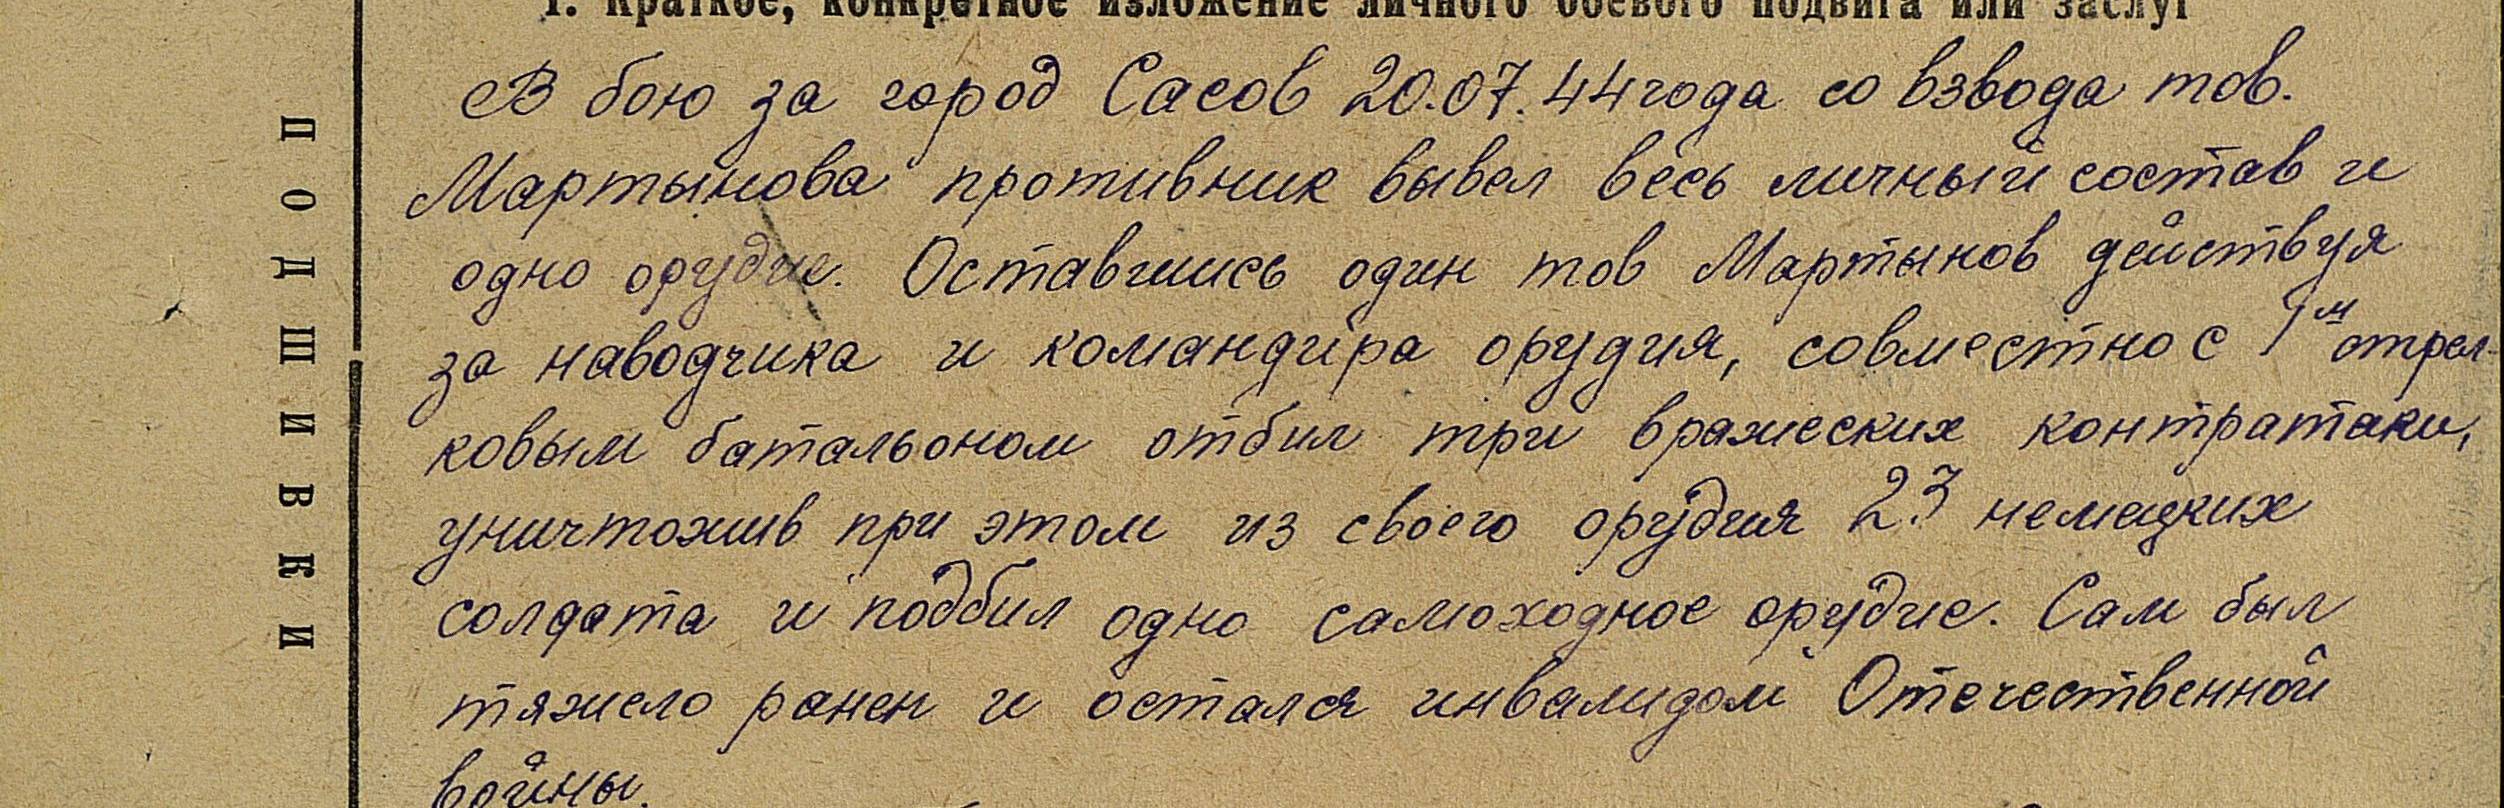 1. Краткое, конкретное изложение личного боевого подвига или заслуг
В бою за город Сасов 20.07.44 года со взвода тов.
Мартынова противник вывел весь личный состав и
одно орудие. Оставшись один тов Мартынов действуя
за наводчика и командира орудия, совместно с 1м стрел-
ковым батальоном отбил три вражеских контратаки,
уничтожив при этом из своего орудия 23 немецких
солдата и подбил одно самоходное орудие. Сам был
тяжело ранен и остался инвалидом Отечественной
войны.
ПОДШИВКИ